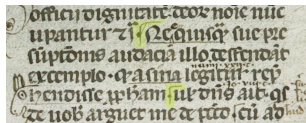 officii dignitate deor noie nuc
upantur ⁊c Ne quisq sue pre
suptois audacia illo defendat
exemplo q asina legitur rep
hendisse pham ul dns ait qs
de uob arguet me de pcto cu ad